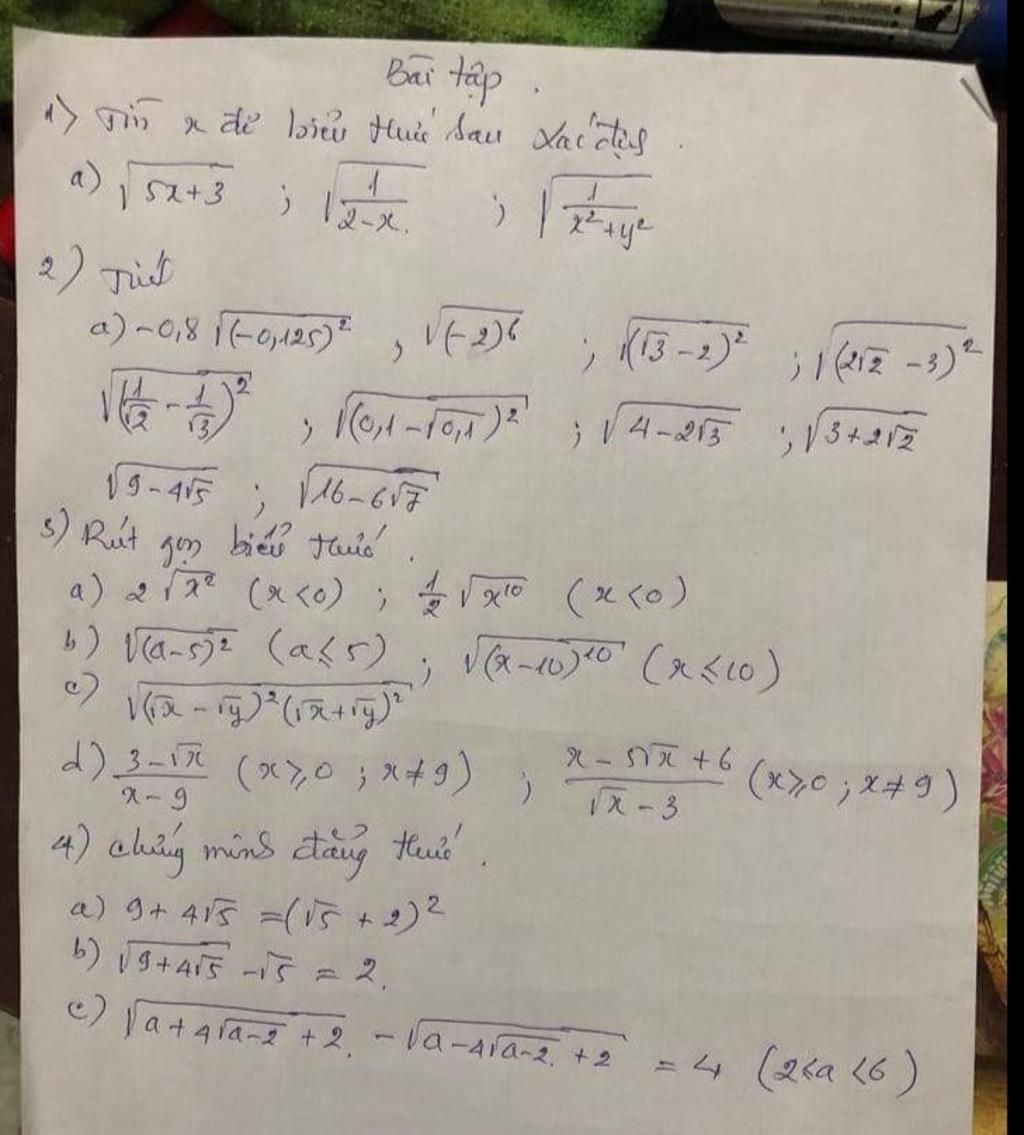 Bài tập.
1) Tìm x để biểu thức sau xác định.
a) √(5x+3) ; √(1/(2-x)) ; √(1/(x²+y²))
2) Tính
a) -0,8 √((-0,125)²) , √((-2)⁶) ; √((√3-2)²) ; √((2√2-3)²)
√((1/√2 - 1/√3)²) ; √((0,1-√0,1)²) ; √(4-2√3) ; √(3+2√2)
√(9-4√5) ; √(16-6√7)
3) Rút gọn biểu thức.
a) 2√x² (x<0) ; 1/2 √x¹⁰ (x<0)
b) √((a-5)²) (a≤5) ; √((x-10)¹⁰) (x≤10)
c) √((√x-√y)²(√x+√y)²)
d) (3-√x)/(x-9) (x≥0 ; x≠9) ; (x-5√x+6)/(√x-3) (x≥0 ; x≠9)
4) chứng minh đẳng thức.
a) 9+4√5 =(√5+2)²
b) √(9+4√5) -√5 = 2.
c) √(a+4√(a-2)+2) - √(a-4√(a-2)+2) = 4 (2<a<6)